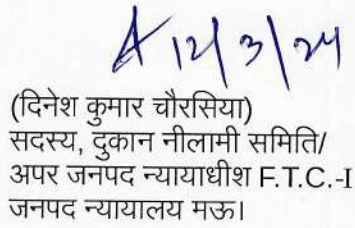 12/3/24
(दिनेश कुमार चौरसिया)
सदस्य, दुकान नीलामी समिति/
अपर जनपद न्यायाधीश F.T.C.-I
जनपद न्यायालय मऊ।